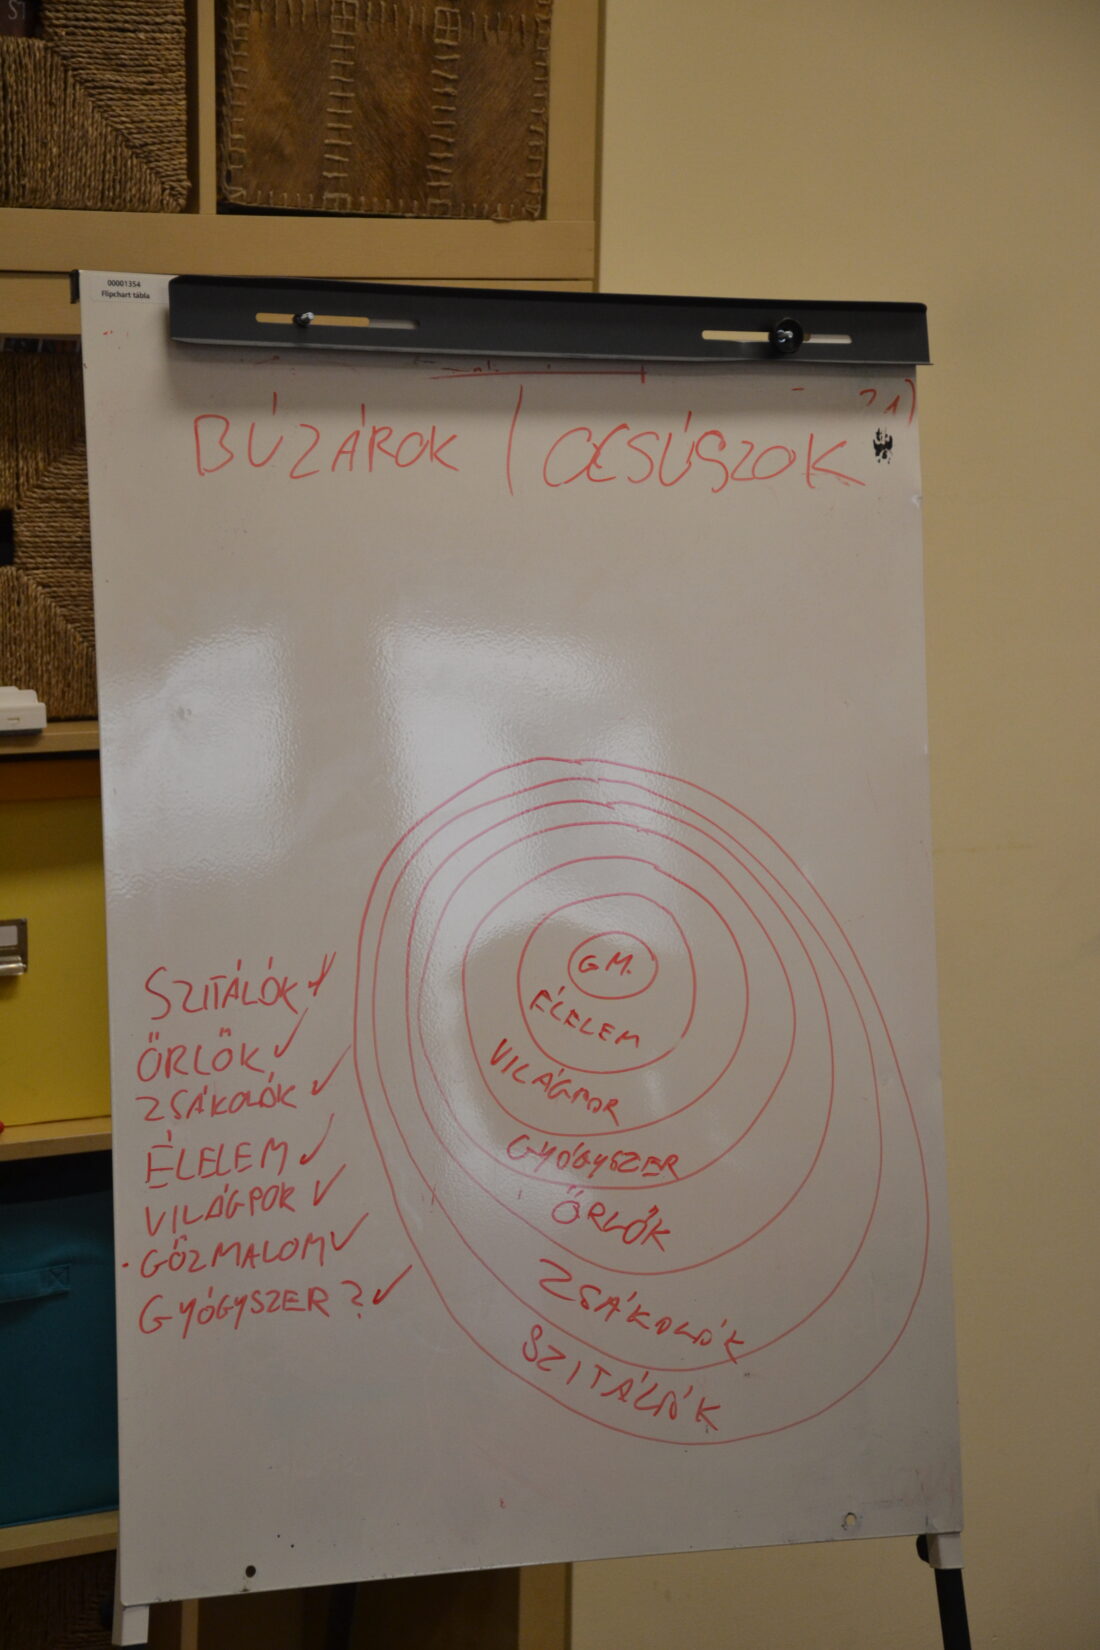 00001354
Flipchart tábla
BÚZÁROK / OCSÚSZOK
G.M.
ÉLELEM
VILÁGPOR
GYÓGYSZER
ŐRLŐK
ZSÁKOLÓK
SZITÁLÓK
SZITÁLÓK ✓
ŐRLŐK ✓
ZSÁKOLÓK ✓
ÉLELEM ✓
VILÁGPOR ✓
· GŐZMALOM ✓
GYÓGYSZER ? ✓